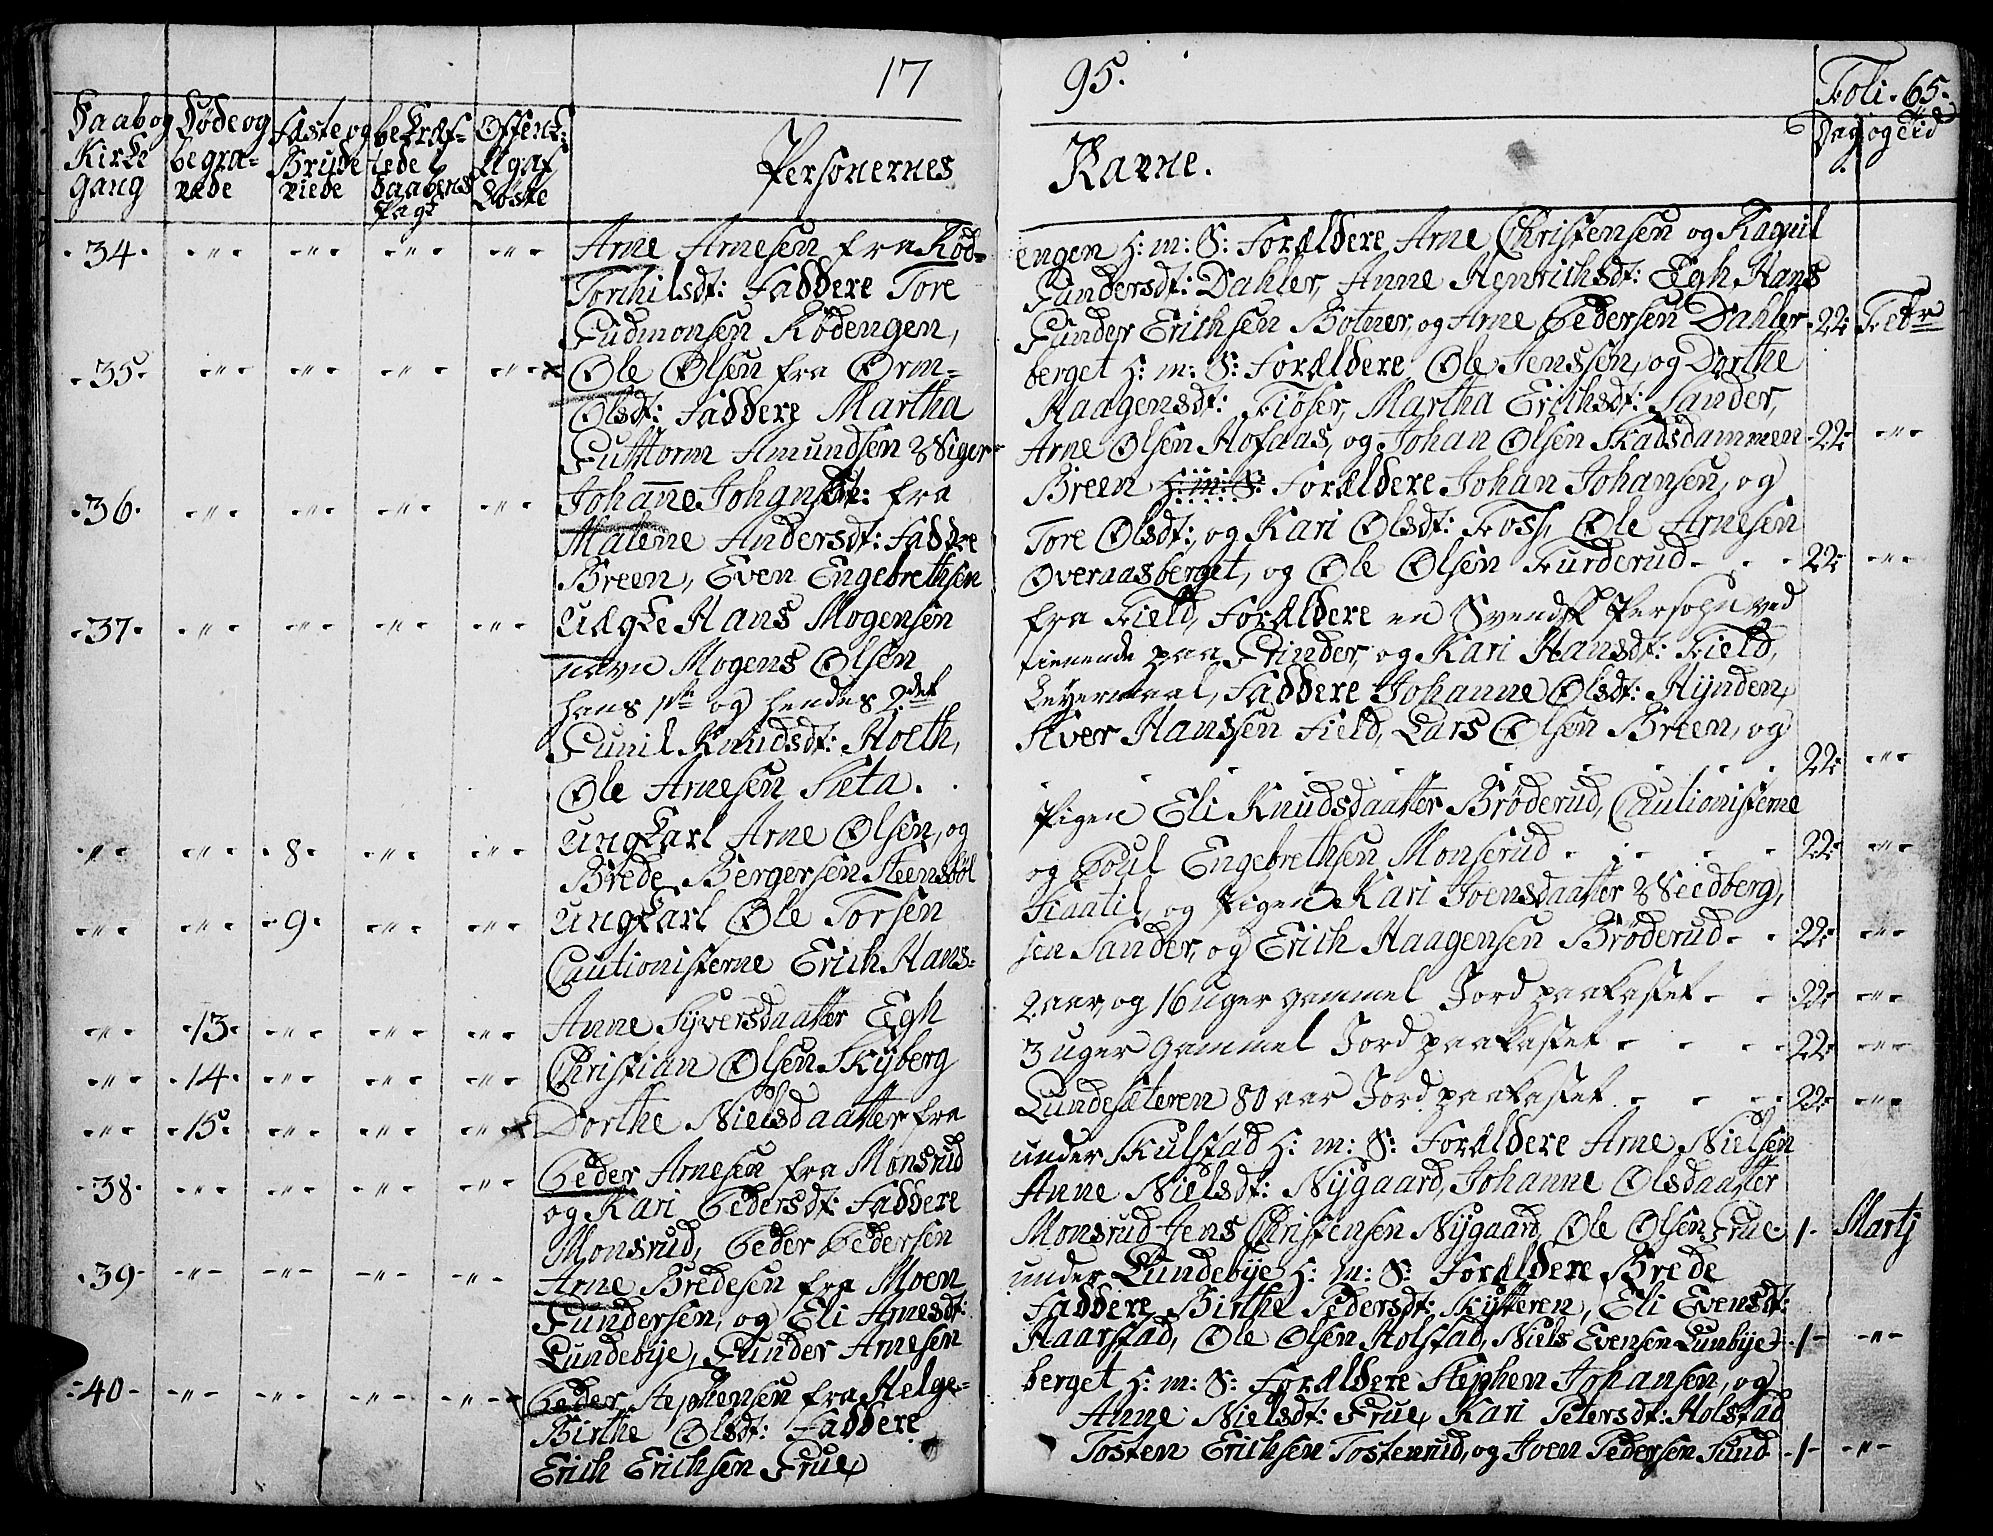 17 95. Foli. 65.
Daab og Kirke gang
Døde og begravede
Fæste og Bryde viede
bekræftede Daabens Pagt
Offentligaf Løste
Personernes Navne.
Dag og Tid
34. Arne Arnesen fra Rød- engen H: m: S: Forældere Arne Christensen og
Torchilsdt: Faddere Tore Gundersdt: Dahler, Anne Henrichsdt: Egh, Hans
Gudmonsen Rødengen, Gunder Erichsen Botner, og Arne Pedersen Dahler 22: Febr
35. Ole Olsen fra Orm- berget H: m: S: Forældere Ole Jenssen, og Dorthe
Olsdt: Faddere Martha Haagensdt: Fiøser, Martha Erichsdt: Sander,
Guttorm Amundsen Niger- Arne Olsen Hofaas, og Johan Olsen Skadsdammen 22: -"-
36. Johanne Johansdt: fra Breen H: m: S: Forældere Johan Johansen, og
Malene Andersdt: Faddre Tore Olsdt:, og Kari Olsdt: Foss, Ole Arnesen
Breen, Even Engebrethsen Overaasberget, og Ole Olsen Furderud - - - 22: -"-
37. Uægte Hans Mogensen fra Field, Forældere en Svensk Persohn ved
navn Mogens Olsen tienende paa Grinder, og Kari Hansdt: Field,
hans 1ste og hendes 2det Leyermaal, Faddere Johanne Olsdt: Hynden,
Gunil Knudsdt: Holth, Siver Hanssen Field, Lars Olsen Breen, og
Ole Arnesen Sæta. - - - - - - 22: -"-
8. Ungkarl Arne Olsen, og Pigen Eli Knudsdaatter Brøderud, Cautionisterne
Brede Bergersen Steensbøl og Poul Engebrethsen Monserud - - - - 22: -"-
9. Ungkarl Ole Torsen Kiaatil, og Pigen Kari Joensdaatter Weedberg,
Cautionisterne Erich Hans- sen Sander, og Erich Haagensen Brøderud - - 22: -"-
13. Anne Syversdaatter Egh 2 aar, og 16 uger gammel Jord paakastet - - 22: -"-
14. Christian Olsen Skyberg 3 uger gammel Jord paakastet - - - 22: -"-
15. Dorthe Nielsdaatter fra Lundesæteren 80 aar Jord paakastet - - - 22: -"-
38. Peder Arnesen fra Monsrud under Skulstad H: m: S: Forældere Arne Nielsen
og Kari Pedersdt: Faddere Anne Nielsdt: Nygaard, Johanne Olsdaatter
Monsrud, Peder Pedersen Monsrud, Jens Christensen Nygaard, Ole Olsen Grue 1- Martj
39- Arne Bredesen fra Moen under Lundebye H: m: S: Forældere Brede
Gundersen, og Eli Arnesdt: Faddere Birthe Pedersdt: Skytteren, Eli Evensdt:
Lundebye, Gunder Arnesen Haarstad, Ole Olsen Holstad, Niels Evensen Lunbye 1- -"-
40- Peder Stephensen fra Helge- berget H: m: S: Forældere Stephen Johansen, og
Birthe Olsdt: Faddere Anne Nielsdt: Grue, Kari Petersdt: Holstad
Erich Erichsen Grue, Tosten Erichsen Tostenrud, og Joen Pedersen Sund -1- -"-